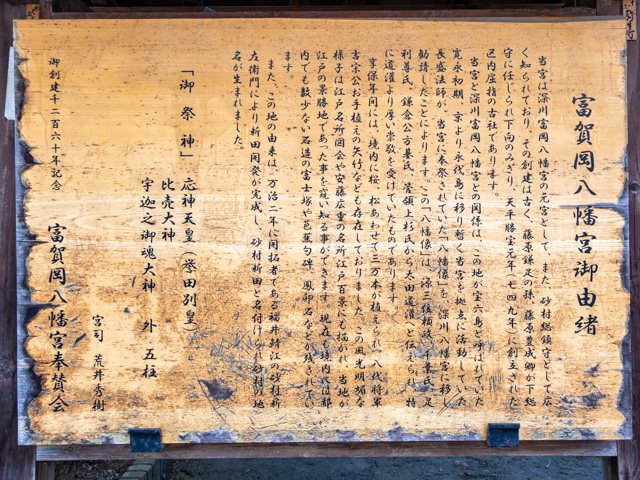 富賀岡八幡宮御由緒
当宮は深川富岡八幡宮の元宮として、また、砂村総鎮守として広
く知られており、その創建は古く、藤原鎌足の緑、藤原豊成卿が下総
守に任じられ下向のみぎり、天平勝宝元年(七四九年)に創立された
区内屈指の古社であります。
当宮と深川富岡八幡宮との関係は、この地が宝六島と呼ばれていた
寛永初期、京より永代島に移り暫く当宮を拠点に活動していた
長盛法師が、当宮に奉祭されていた「八幡像」を、深川八幡宮に移し
勧請したことによります。この「八幡像」は、源三位頼政、千葉氏、足
利尊氏、鎌倉公方基氏、管領上杉氏から太田道灌へと伝えられ、特
に道灌より厚い崇敬を受けていたものであります。
享保年間には、境内に桜、松あわせて三万本が植えられ、八代将軍
吉宗公お手植えの矢竹なども存在しておりました。この風光明媚な
様子は江戸名所図会や安藤広重の名所江戸百景にも描かれ、当地が
江戸の景勝地であった事を窺い知る事ができます。現在も境内には都
内でも数少ない石造の富士塚や芭蕉句碑、鳳卵石などが残されてい
ます。
また、この地の由来は、万治二年に開拓者である福井鯖江の砂村新
左衛門により新田開発が完成し、砂村新田と名付けられ砂村の地
名が生まれました。
「御祭神」 応神天皇(誉田別皇)
比売大神
宇迦之御魂大神 外 五柱
宮司 荒井秀樹
御創建千二百六十年記念 富賀岡八幡宮奉賛会